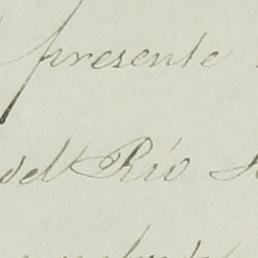 presente
del Rio